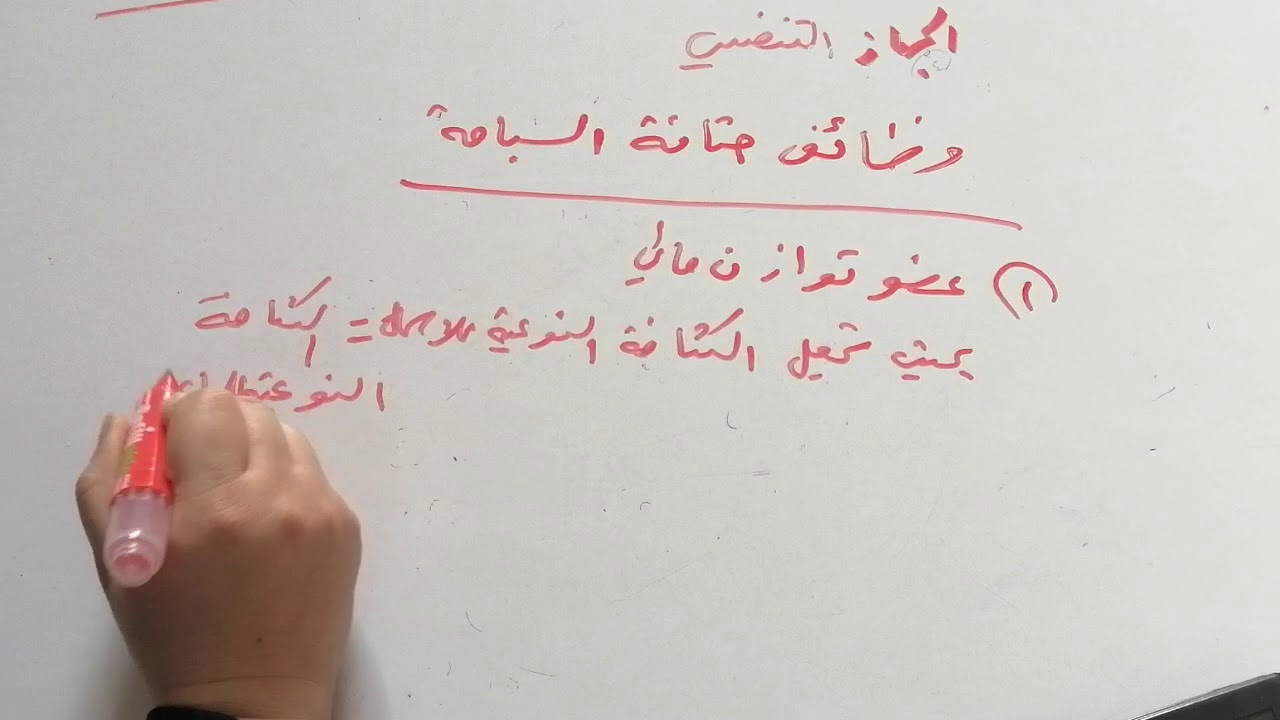 الجهاز التنفسي
وظائف مثانة السباحة
١ عضو توازن مائي
بحيث تجعل الكثافة النوعية للاسماك = الكثافة
النوعية